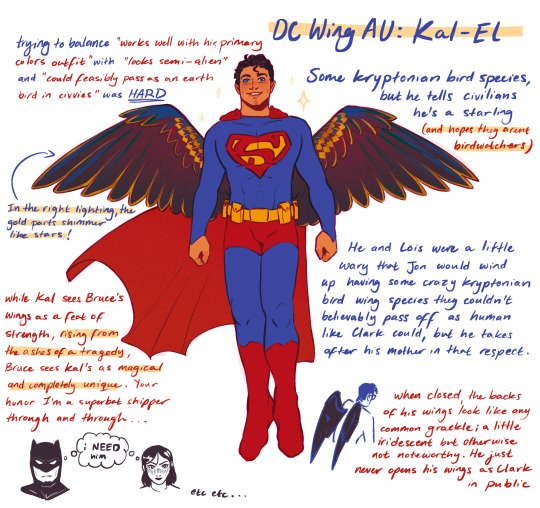 DC Wing AU: Kal-El
trying to balance "works well with his primary
colors outfit" with "looks semi-alien"
and "could feasibly pass as an earth
bird in civvies" was HARD
Some kryptonian bird species,
but he tells civilians
he's a starling
(and hopes they arent
birdwatchers)
In the right lighting, the
gold parts shimmer
like stars!
He and Lois were a little
wary that Jon would wind
up having some crazy kryptonian
bird wing species they couldn't
believably pass off as human
like Clark could, but he takes
after his mother in that respect.
while Kal sees Bruce's
wings as a feat of
strength, rising from
the ashes of a tragedy,
Bruce sees Kal's as magical
and completely unique. Your
honor I'm a superbat shipper
through and through...
when closed, the backs
of his wings look like any
common grackle; a little
iridescent but otherwise
not noteworthy. He just
never opens his wings as Clark
in public
i NEED
him
etc etc...